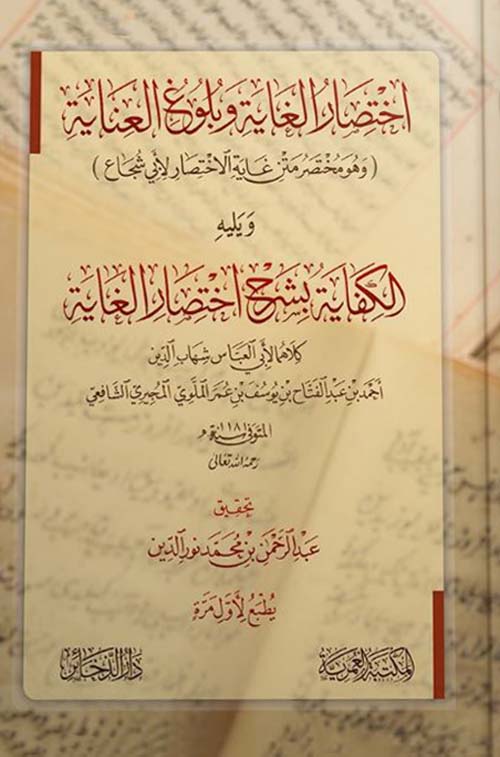 اخْتِصَارُ الغَايَةِ وَبُلُوغُ العِنَايَةِ
(وَهُوَ مُخْتَصَرُ مَتْنِ غَايَةِ الاخْتِصَارِ لِأَبِي شُجَاعٍ)
وَيَلِيهِ
الكِفَايَةُ بِشَرْحِ اخْتِصَارِ الغَايَةِ
كِلَاهُمَا لِأَبِي العَبَّاسِ شِهَابِ الدِّينِ
أَحْمَدَ بْنِ عَبْدِ الفَتَّاحِ بْنِ يُوسُفَ بْنِ عُمَرَ المَلَّوِيِّ المُجِيرِيِّ الشَّافِعِيِّ
المتوفى سنة ١١٨١ هـ
رحمه الله تعالى
تحقيق
عَبْدُ الرَّحْمٰنِ بْنُ مُحَمَّدٍ نُورِ الدِّينِ
يُطْبَعُ لِأَوَّلِ مَرَّةٍ
المَكْتَبَةُ العُمَرِيَّةُ
دَارُ الذَّخَائِرِ